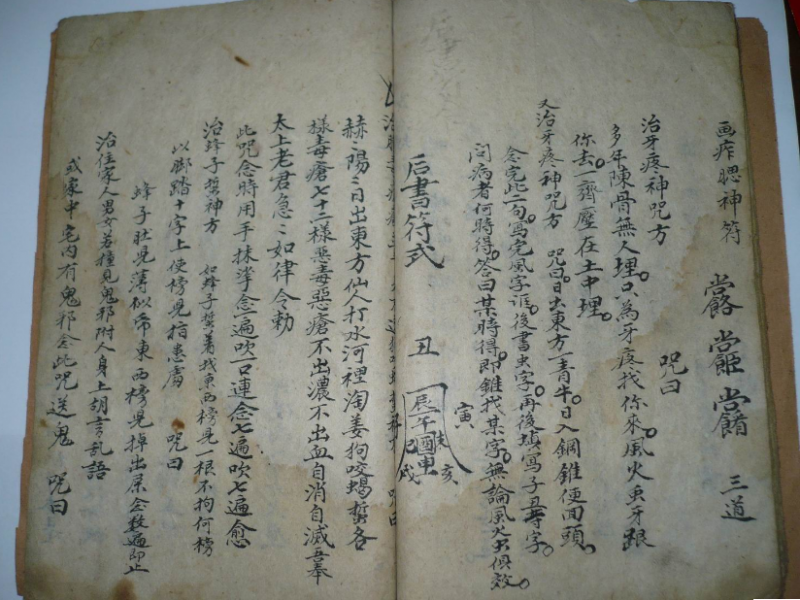 画痄腮神符 三道
治牙疼神咒方 咒曰
多年陳骨無人埋只為牙疼找你來風火虫牙跟
你去一齊壓在土中埋
又治牙疼神咒方 咒曰日出東方一青牛口入鋼錐便回頭
念完此二句寫完風字誰後書虫字再後填寫子丑等字
問病者何時得答曰某時得即錐找某字無論風火虫俱效
后書符式 丑 寅 辰 午 酉 申 巳 戌 亥
咒曰
赫〻陽〻日出東方仙人打水河裡淘姜狗咬蝎蜇各
樣毒瘡七十二樣惡毒惡瘡不出濃不出血自消自滅吾奉
太上老君急〻如律令勅
此咒念時用手抹掌念一遍吹一口連念七遍吹七遍愈
治蜂子蜇神方 如蜂子蜇著找東西榜見一根不拘何榜
以脚踏十字上使榜見指患處 咒曰
蜂子肚見薄似帋東西榜見掉出屎念数遍即止
治住家人男女若撞見鬼邪附人身上胡言乱語
或家中宅内有鬼邪念此咒送鬼 咒曰